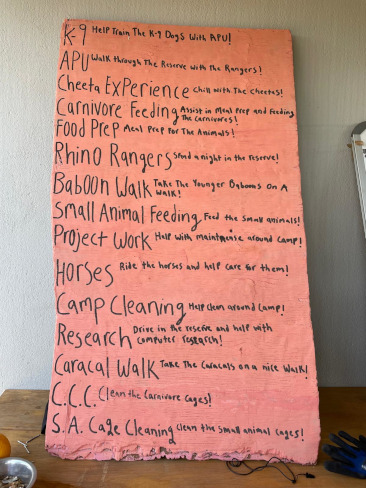 K-9 Help Train The K-9 Dogs With APU!
APU Walk through The Reserve with The Rangers!
Cheeta ExPerience Chill with The Cheetas!
Carnivore Feeding Assist in Meal Prep and Feeding
The Carnivores!
Food Prep Meal Prep For The Animals!
Rhino Rangers Spend a night in the reserve!
Baboon Walk Take The Younger Baboons On A
Walk!
Small Animal Feeding Feed the small animals!
Project Work Help with maintnense around Camp!
Horses Ride the horses and help care for them!
Camp Cleaning Help clean around Camp!
Research Drive in the reserve and help with
computer research!
Caracal Walk Take The Caracals on a nice Walk!
C.C.C. Clean the Carnivore Cages!
S.A. Cage Cleaning Clean the small animal cages!